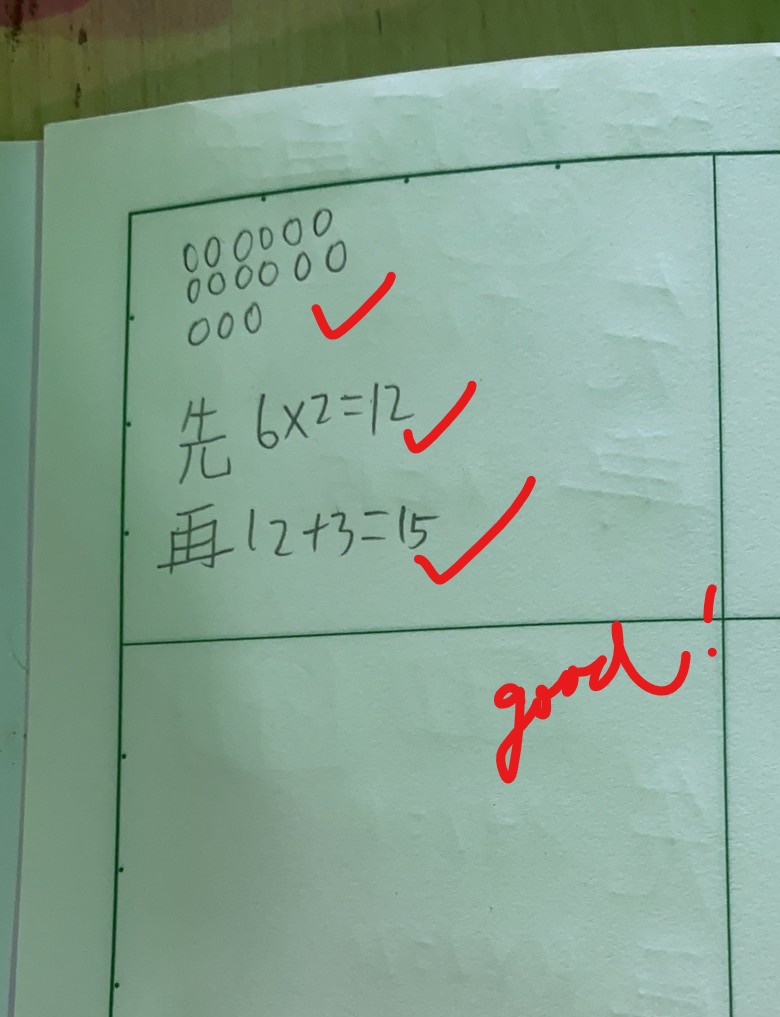 000000
000000
000
先 6×2=12
再 12+3=15
good!